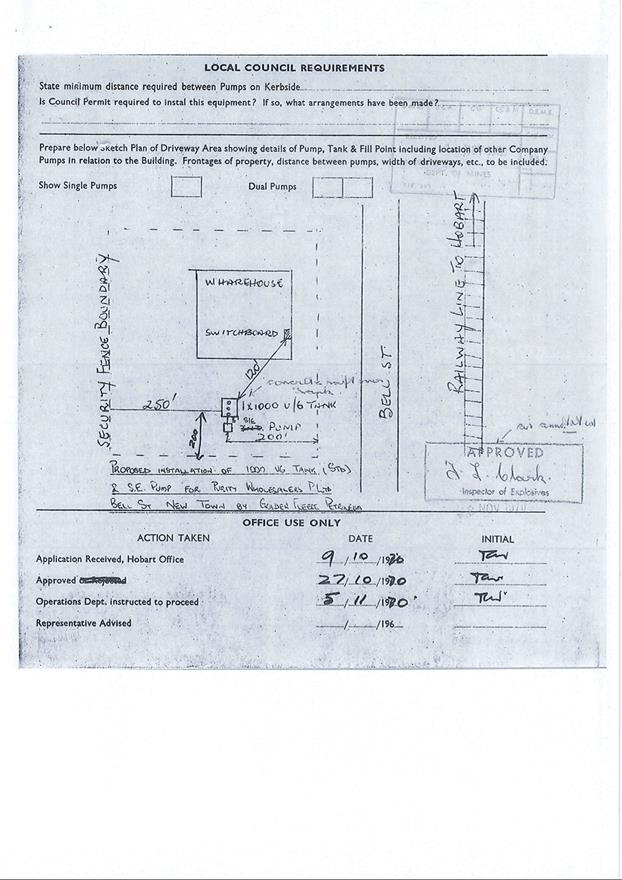 LOCAL COUNCIL REQUIREMENTS
State minimum distance required between Pumps on Kerbside
Is Council Permit required to instal this equipment? If so, what arrangements have been made?
DEPT. OF MINES
Prepare below Sketch Plan of Driveway Area showing details of Pump, Tank & Fill Point including location of other Company
Pumps in relation to the Building. Frontages of property, distance between pumps, width of driveways, etc., to be included.
Show Single Pumps
Dual Pumps
SECURITY FENCE BOUNDARY
WHAREHOUSE
SWITCHBOARD
120'
BELL ST
RAILWAY LINE TO HOBART
250'
1X1000 U/G TANK
PUMP
200'
200
PROPOSED INSTALLATION OF 1000 UG TANK (STD)
& S.E. PUMP FOR PURITY WHOLESALERS P/LTD
BELL ST NEW TOWN BY GOLDEN FLEECE PETROLEUM
APPROVED
Inspector of Explosives
NOV
OFFICE USE ONLY
ACTION TAKEN DATE INITIAL
Application Received, Hobart Office 9/10/1970
Approved 27/10/1970
Operations Dept. instructed to proceed 5/11/1970
Representative Advised / /196